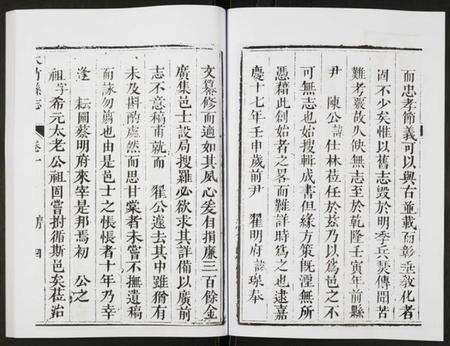 而忠孝節義可以與古並載而彰垂教化者
固不少矣惟以舊志毀於明季兵燹傳聞苦
難考覈故久缺無志至於乾隆壬寅年前縣
尹 陳公諱仕林蒞任於茲乃以爲邑之不
可無志也始搜輯成書但綠方策既湮無所
憑藉此創始者之畧而難詳時爲之也逮嘉
慶十七年壬申歲前尹 翟明府諱瑔奉
文纂修而適如其夙心爰有捐廉三百餘金
廣集邑士設局搜羅必欲求其詳備以廣前
志不意稿甫就而 翟公遽去其中雖猶有
未及斟酌處然而思甘棠者未嘗不撫遺稿
而詠勿翦也由是邑士之悵悵者十年乃幸
逢 耘圃蔡明府來宰是邦焉初 公之
祖字希元太老公祖固嘗拊循斯邑矣蒞治
大竹縣志 卷一